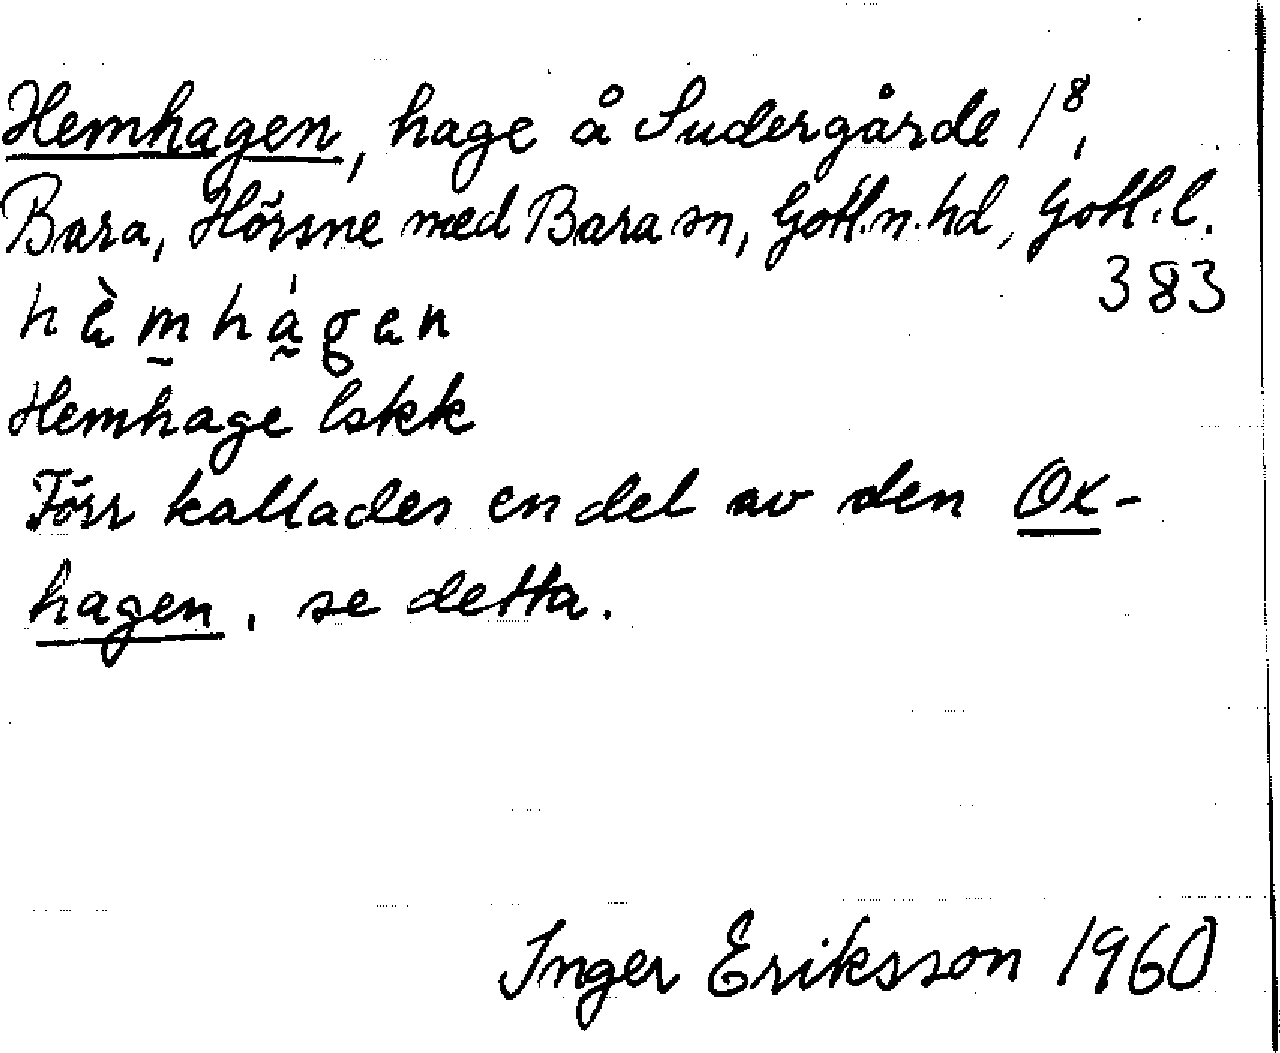 Hemhagen, hage å Sudergårde 1⁸,
Bara, Hörsne med Bara sn, Gotl.n.hd, Gotl.l.
383
hèmhágen
Hemhage lskk
Förr kallades en del av den Ox-
hagen, se detta.
Inger Eriksson 1960